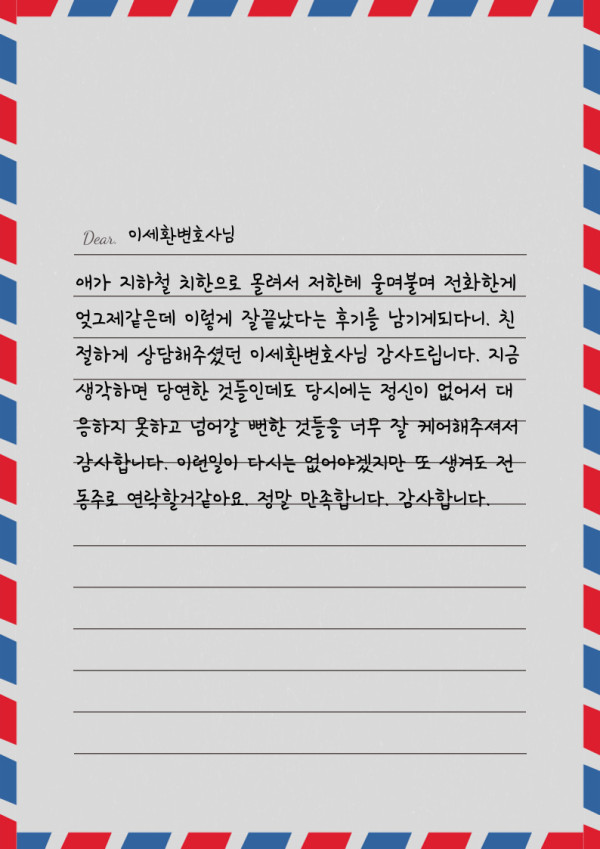 Dear. 이세환변호사님
애가 지하철 치한으로 몰려서 저한테 울며불며 전화한게
엊그제같은데 이렇게 잘끝났다는 후기를 남기게되다니. 친
절하게 상담해주셨던 이세환변호사님 감사드립니다. 지금
생각하면 당연한 것들인데도 당시에는 정신이 없어서 대
응하지 못하고 넘어갈 뻔한 것들을 너무 잘 케어해주셔서
감사합니다. 이런일이 다시는 없어야겠지만 또 생겨도 전
동주로 연락할거같아요. 정말 만족합니다. 감사합니다.